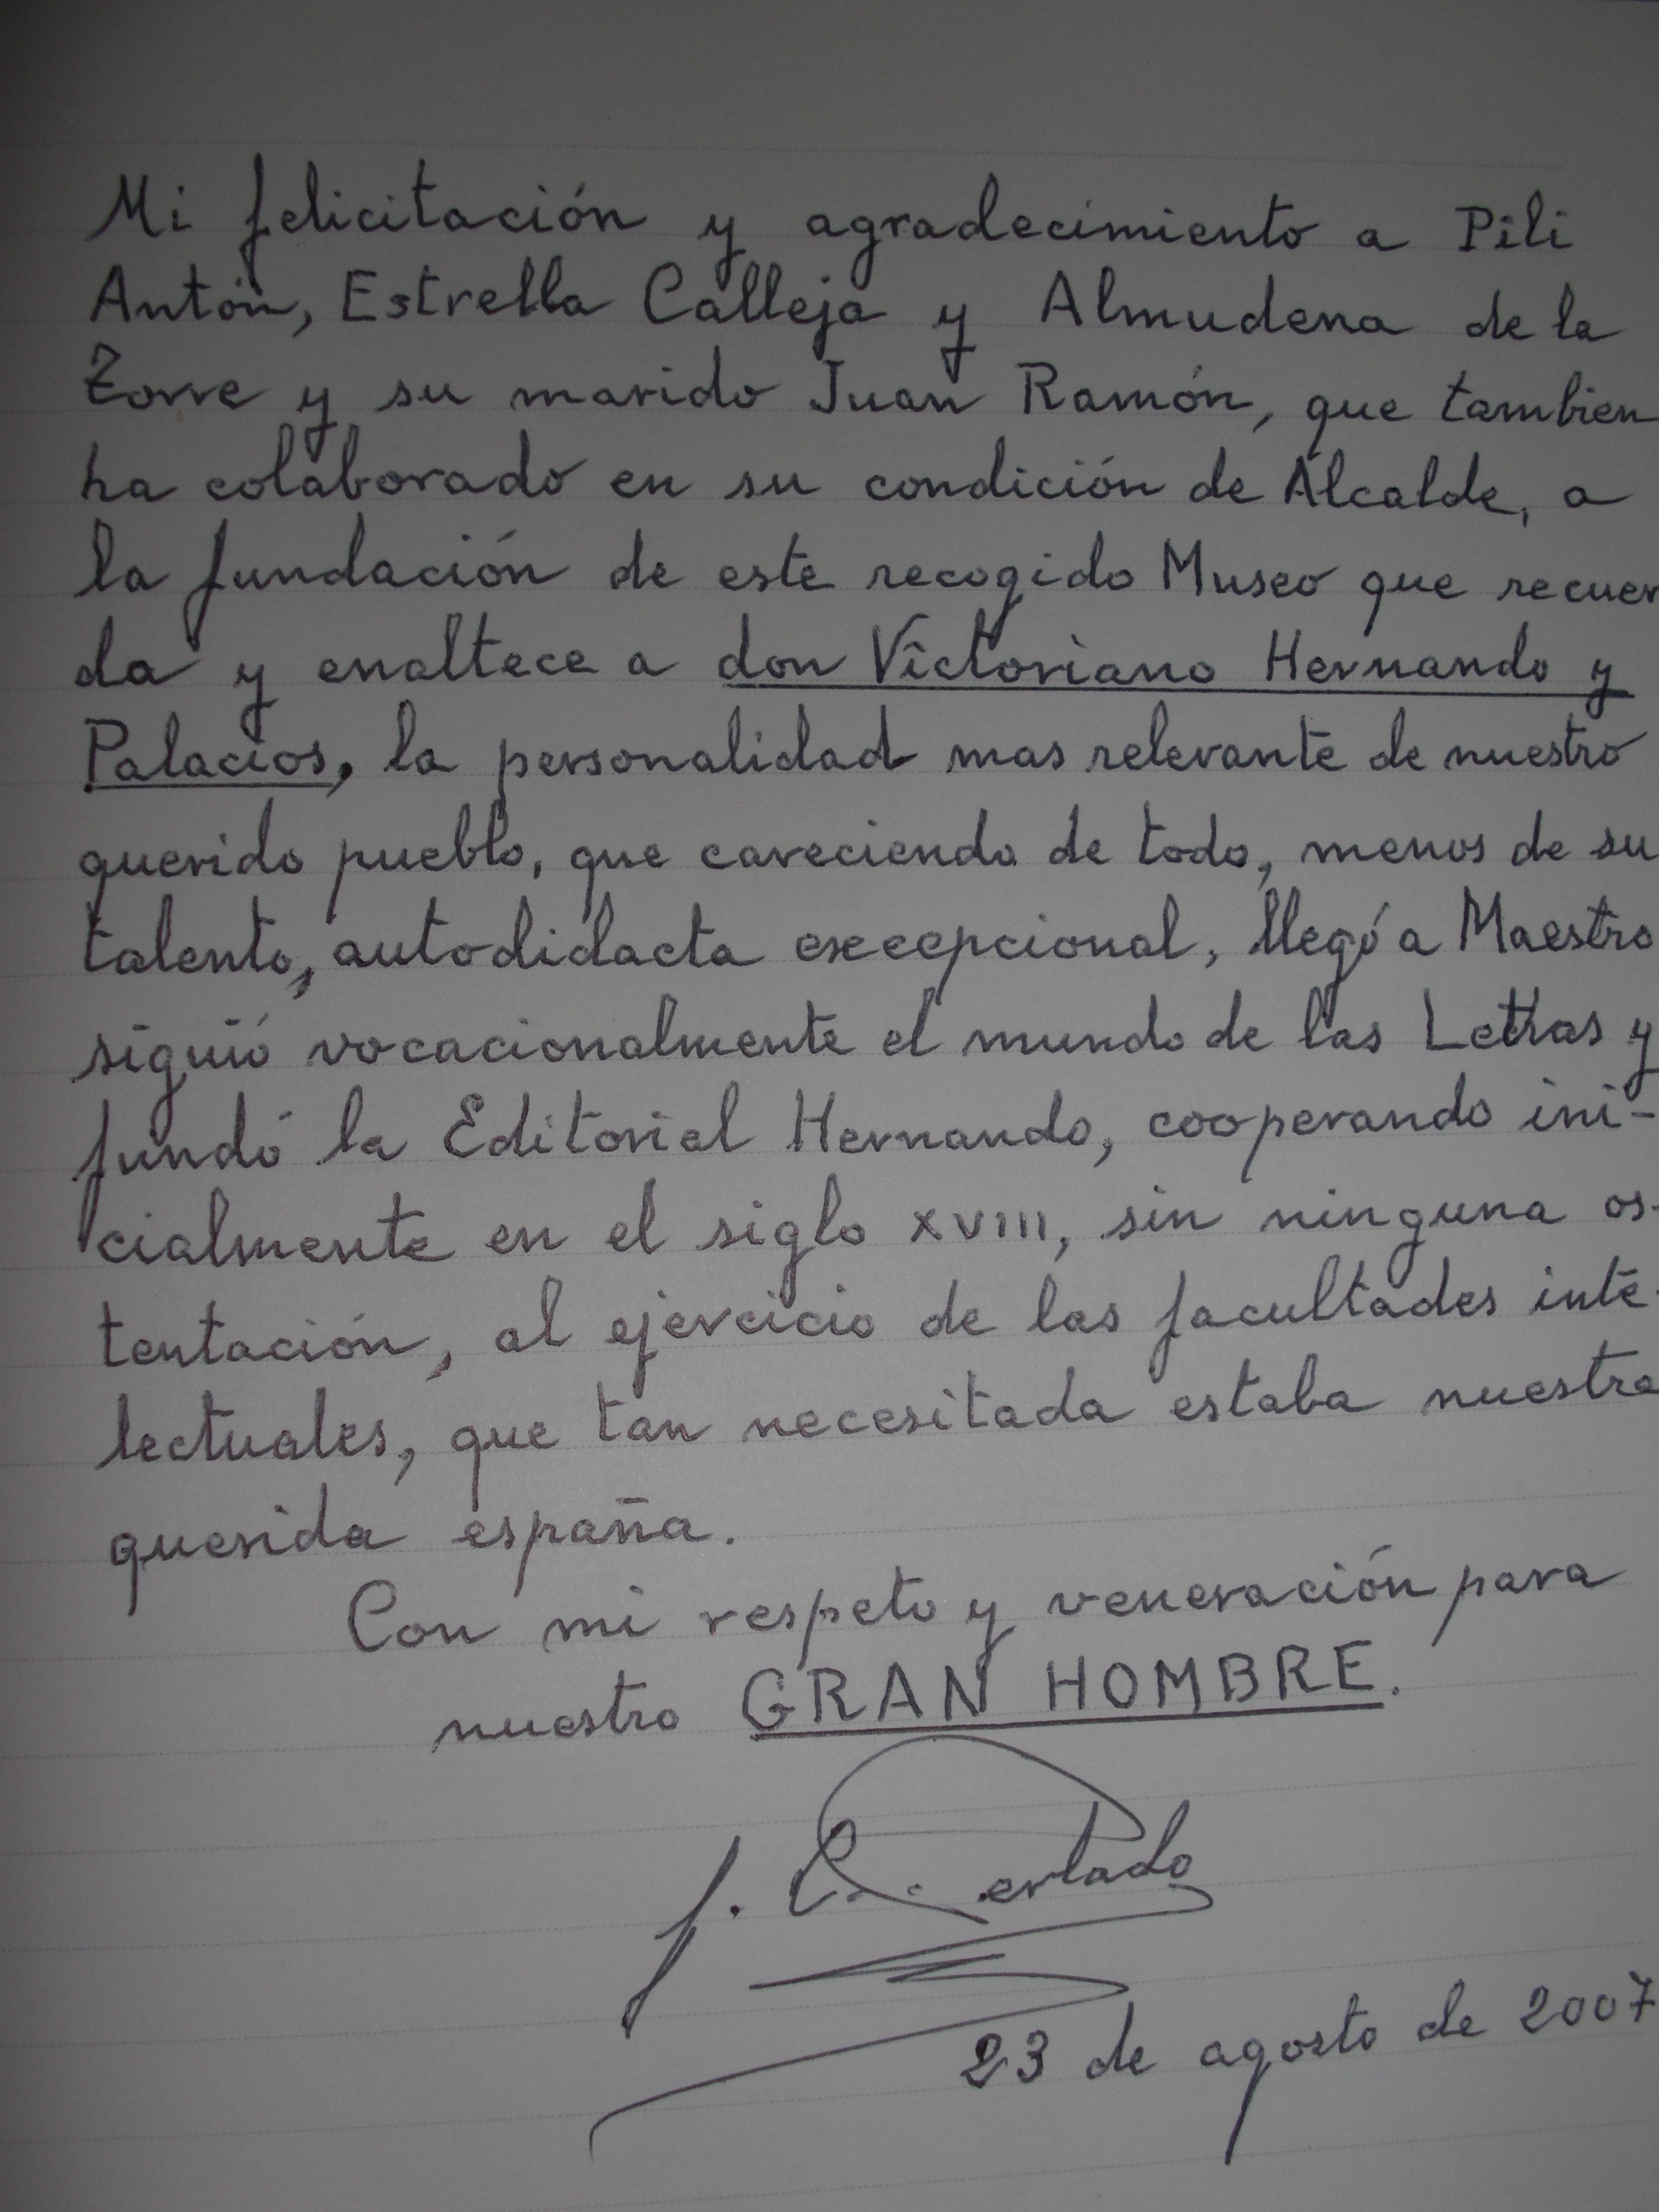 Mi felicitación y agradecimiento a Pili
Antón, Estrella Calleja y Almudena de la
Torre y su marido Juan Ramón, que tambien
ha colaborado en su condición de Alcalde, a
la fundación de este recogido Museo que recuer
da y enaltece a don Victoriano Hernando y
Palacios, la personalidad mas relevante de nuestro
querido pueblo, que careciendo de todo, menos de su
talento, autodidacta excepcional, llegó a Maestro
siguió vocacionalmente el mundo de las Letras y
fundó la Editorial Hernando, cooperando ini-
cialmente en el siglo XVIII, sin ninguna os-
tentación, al ejercicio de las facultades inte-
lectuales, que tan necesitada estaba nuestra
querida españa.
Con mi respeto y veneración para
nuestro GRAN HOMBRE.
23 de agosto de 2007